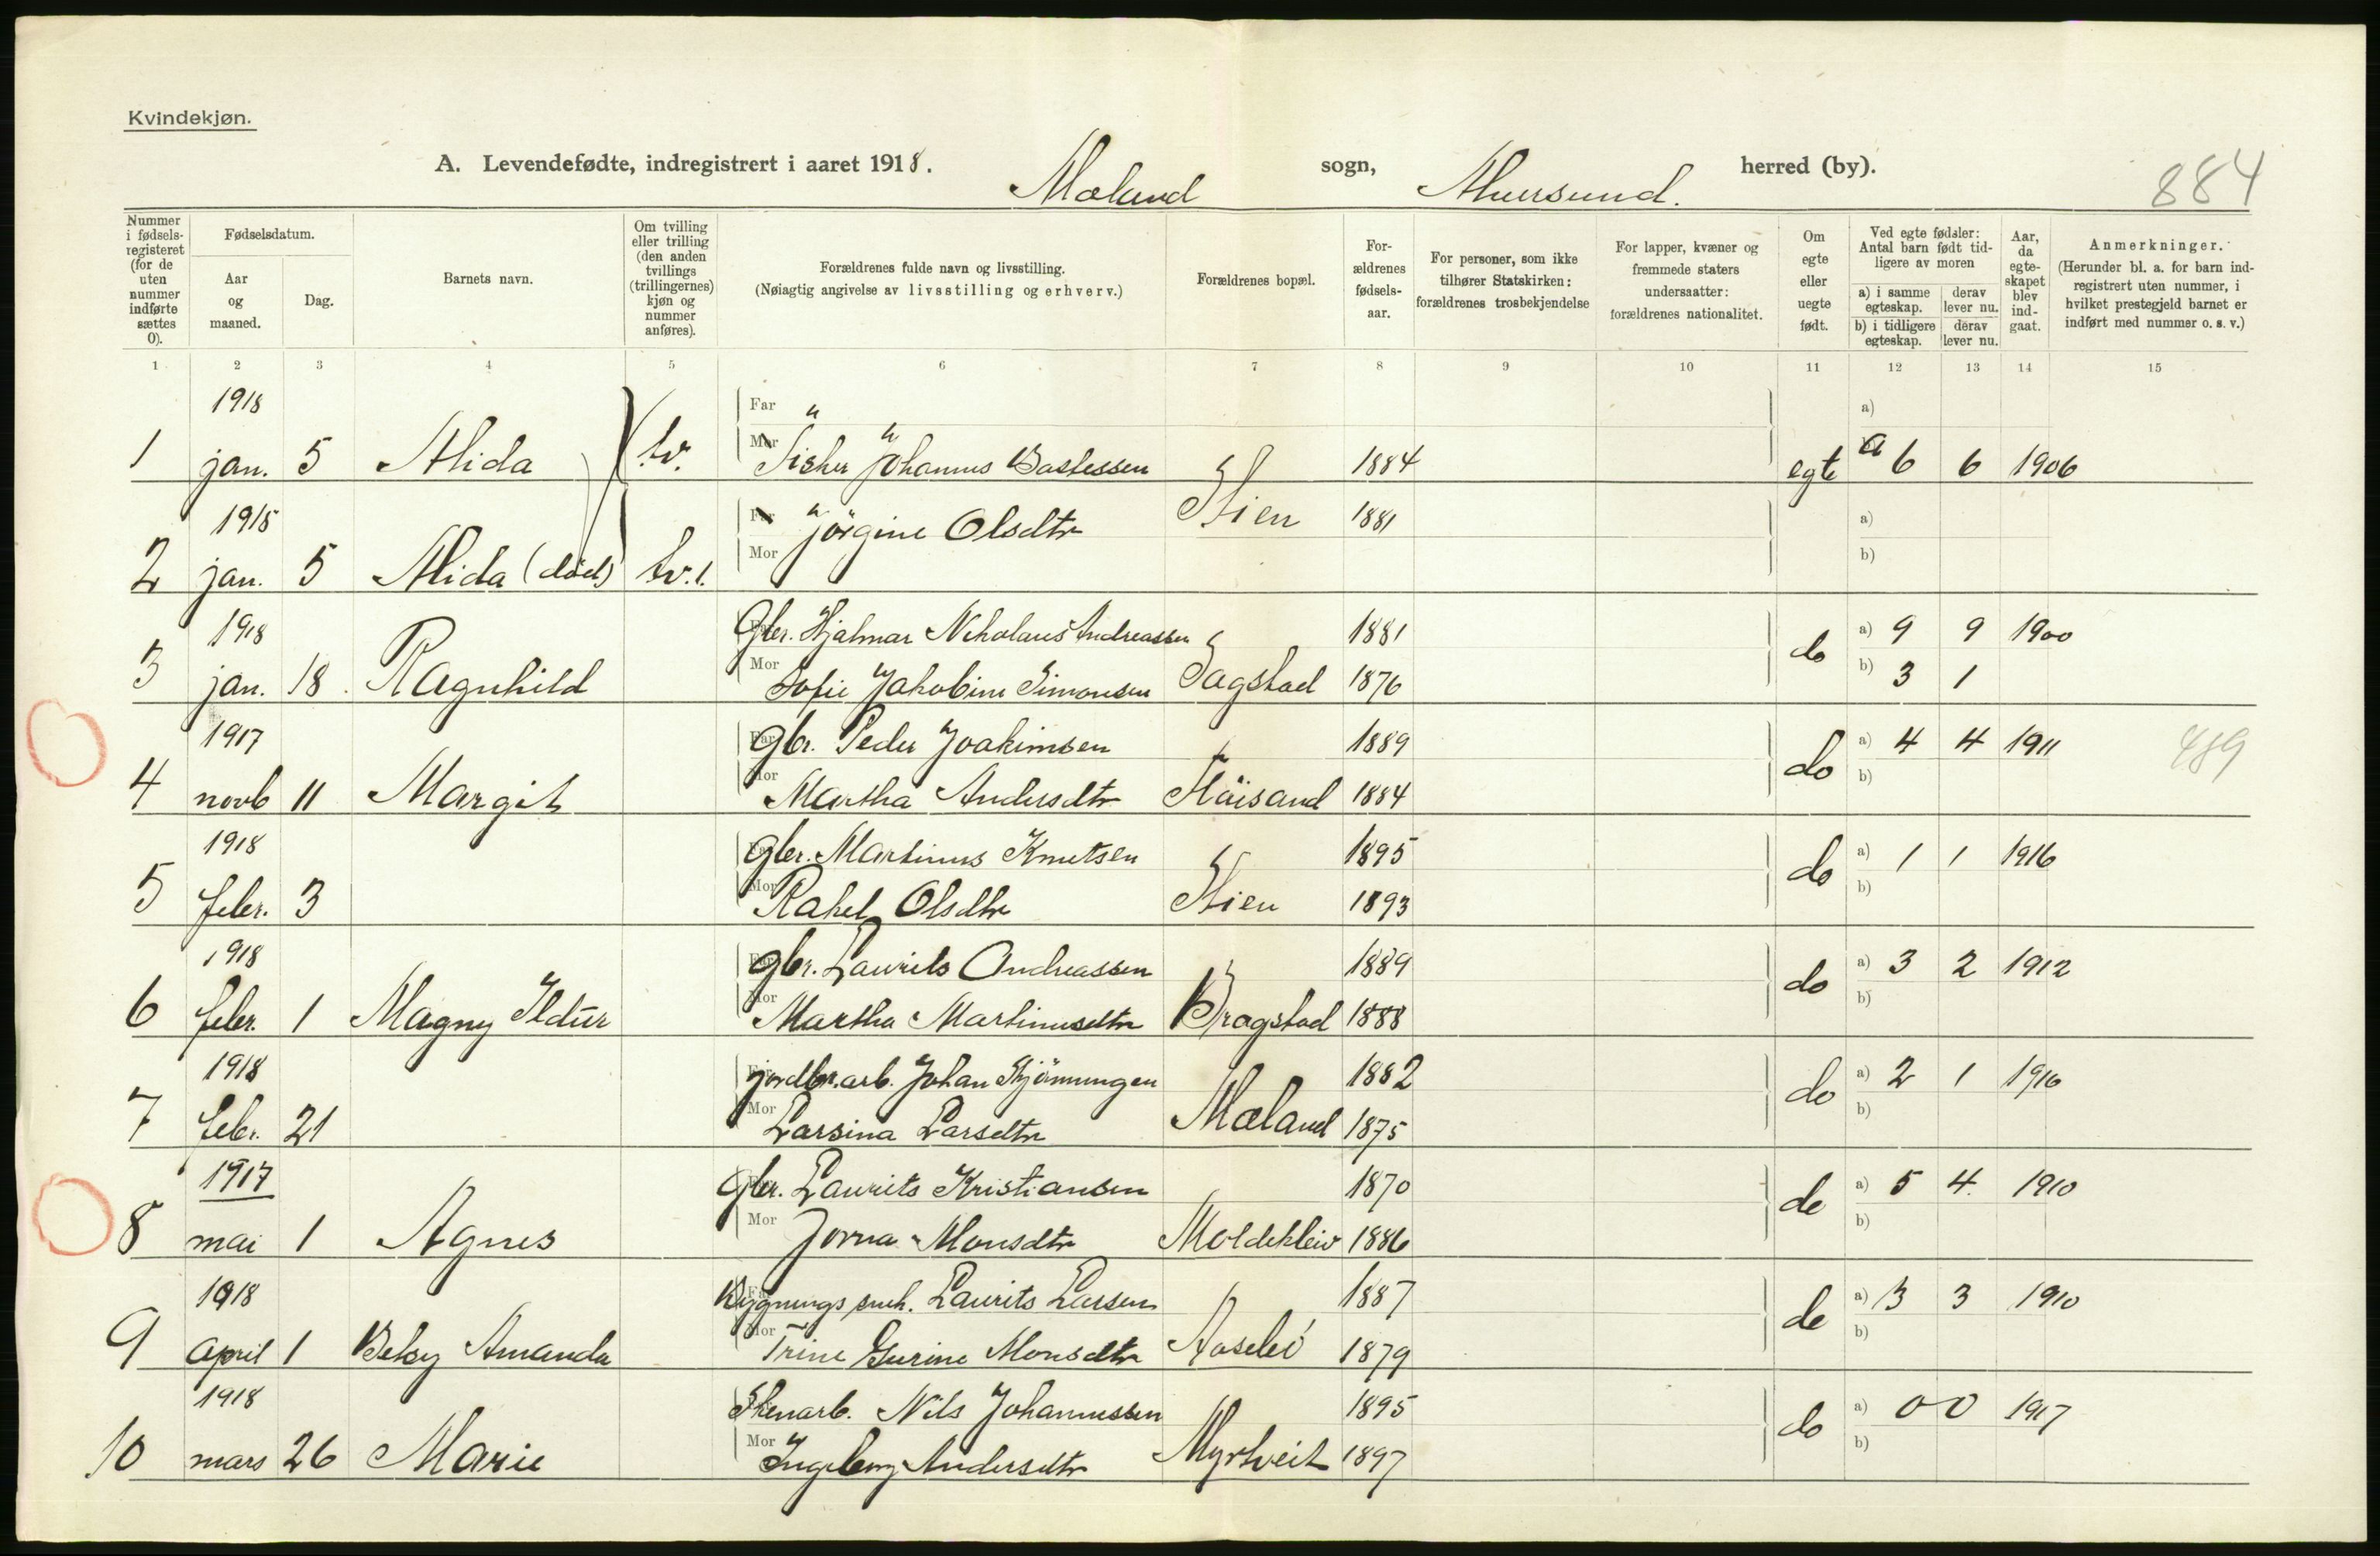 Kvindekjøn.
A. Levendefødte, indregistrert i aaret 1918. Mæland sogn, Alversund. herred (by). 884
Nummer i fødselsregisteret (for de uten nummer indførte sættes 0).
Fødselsdatum.
Aar og maaned.
Dag.
Barnets navn.
Om tvilling eller trilling (den anden tvillings (trillingernes) kjøn og nummer anføres).
Forældrenes fulde navn og livsstilling.
(Nøiagtig angivelse av livsstilling og erhverv.)
Forældrenes bopæl.
Forældrenes fødselsaar.
For personer, som ikke tilhører Statskirken: forældrenes trosbekjendelse
For lapper, kvæner og fremmede staters undersaatter: forældrenes nationalitet.
Om egte eller uegte født.
Ved egte fødsler: Antal barn født tidligere av moren
a) i samme egteskap. derav lever nu.
b) i tidligere egteskap. derav lever nu.
Aar, da egteskapet blev indgaat.
Anmerkninger.
(Herunder bl. a. for barn indregistrert uten nummer, i hvilket prestegjeld barnet er indført med nummer o. s. v.)
1 2 3 4 5 6 7 8 9 10 11 12 13 14 15
1918 Far a)
1 jan. 5 Alida tv. Mor Fisker Johannes Bastessen 1884 egte a 6 6 1906
1918 Far Jörgine Olsdtr Stien 1881 a)
2 jan. 5 Alida (död) tv. 1. Mor b)
1918 Gbr. Hjalmar Nikolaus Andreassen 1881 do a) 9 9 1900
3 jan. 18. Ragnhild Mor Sofie Jakobine Simonsen Fagstad 1876 b) 3 1
1917 Far Gbr. Peder Joakimsen 1889 do a) 4 4 1911 489
4 novb 11 Margit Mor Martha Andersdtr Höisand 1884 b)
1918 Gbr. Martinus Knutsen 1895 do a) 1 1 1916
5 febr. 3 Mor Rakel Olsdtr Stien 1893 b)
1918 Far Gbr. Laurits Andreassen 1889 do a) 3 2 1912
6 febr. 1 Magny Ildur Mor Martha Martinusdtr Dragstad 1888 b)
1918 jordbr.arb. Johan 1882 do a) 2 1 1916
7 febr. 21 Mor Larsina Larsdtr Mæland 1875 b)
1917 Gbr. Laurits Kristiansen 1870 do a) 5 4 1910
8 mai 1 Agnes Mor Jorna Monsdtr Moldekleiv 1886 b)
1918 Bygningssnek. Laurits Larsen 1887 do a) 3 3 1910
9 april 1 Betsy Amanda Mor Trine Gurine Monsdtr 1879 b)
1918 Stenarb. Nils Johannessen 1895 do a) 0 0 1917
10 mars 26 Marie Mor Ingeborg Andersdtr Myrtveit 1897 b)